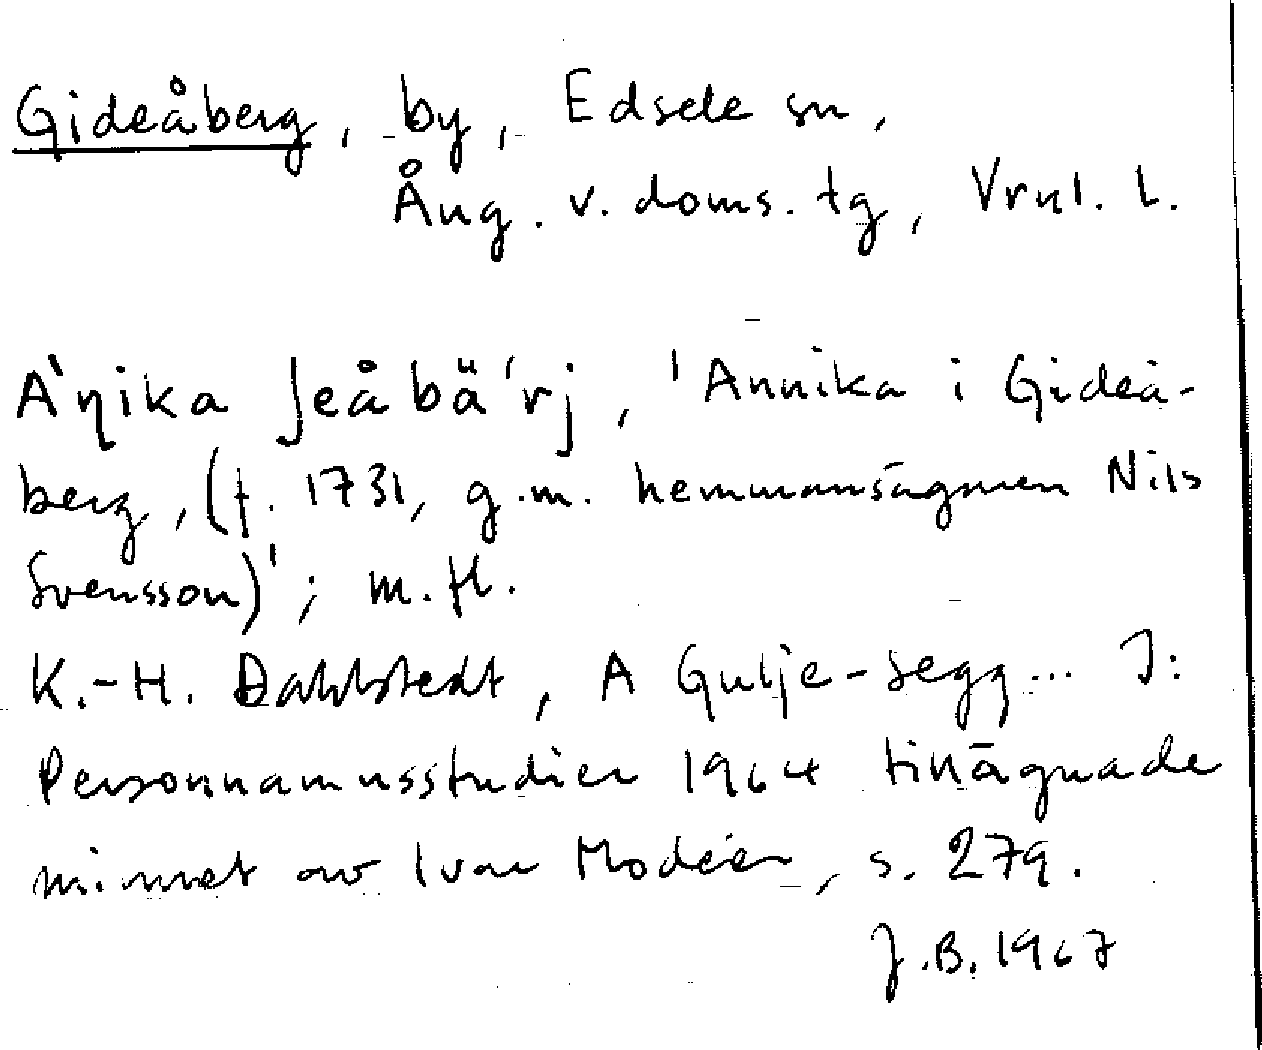 Gideåberg, by, Edsele sn,
Ång. v. doms. tg, Vrnl. L.
A`ŋika ʃeåbä´rj, 'Annika i Gideå-
berg, (f. 1731, g.m. hemmansägaren Nils
Svensson)'; m.fl.
K.-H. Dahlstedt, A Gulje-Segg... I:
Personnamnsstudier 1964 tillägnade
minnet av Ivar Modéer, s. 279.
J.B. 1967